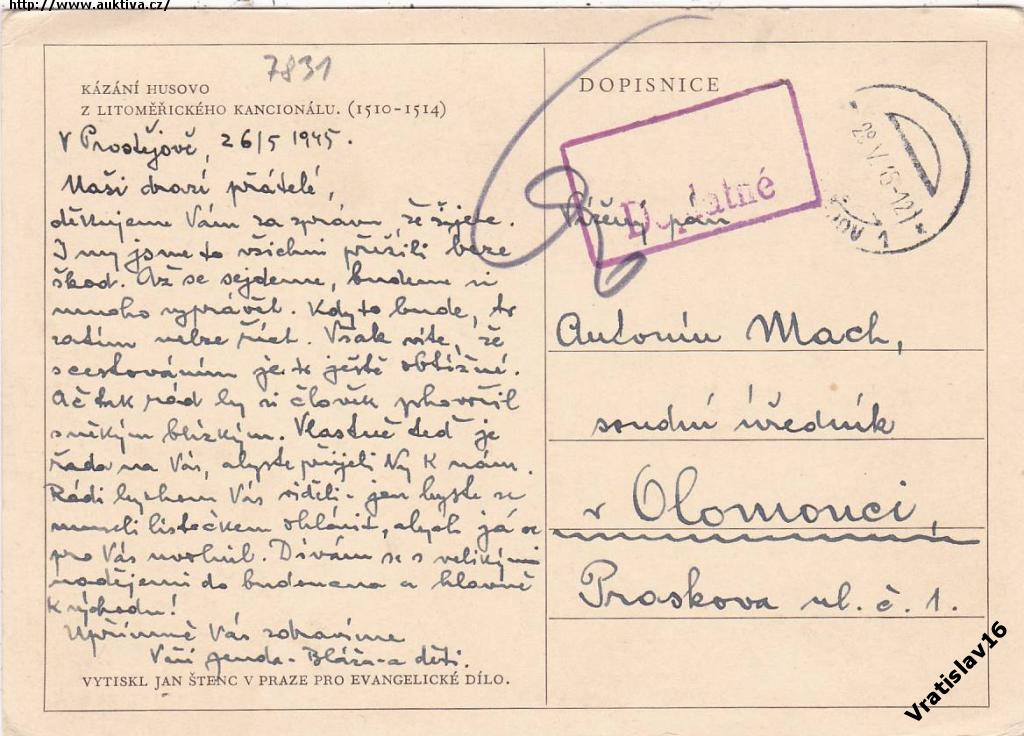 http://www.auktiva.cz/
7831
KÁZÁNÍ HUSOVO
Z LITOMĚŘICKÉHO KANCIONÁLU. (1510-1514)
V Prostějově, 26/5 1945.
Naši drazí přátelé,
děkujeme Vám za zprávu, že žijete.
I my jsme to všichni přežili beze
škod. Až se sejdeme, budeme si
mnoho vyprávět. Kdy to bude, to
zatím nelze říct. Však víte, že
s cestováním je to ještě obtížné.
Ač tak rád by si člověk pohovořil
s někým blízkým. Vlastně teď je
řada na Vás, abyste přijeli Vy k nám.
Rádi bychom Vás viděli - jen byste se
museli lístečkem ohlásit, abych já se
pro Vás uvolnil. Dívám se s velikými
nadějemi do budoucna a hlavně
k východu!
Upřímně Vás zdravíme
Vaši Jenda - Bláža - a děti.
VYTISKL JAN ŠTENC V PRAZE PRO EVANGELICKÉ DÍLO.
DOPISNICE
Doplatné
28. V. 15-12
Vážený pán
Antonín Mach,
soudní úředník
v Olomouci,
Praskova ul. č. 1.
Vratislav16